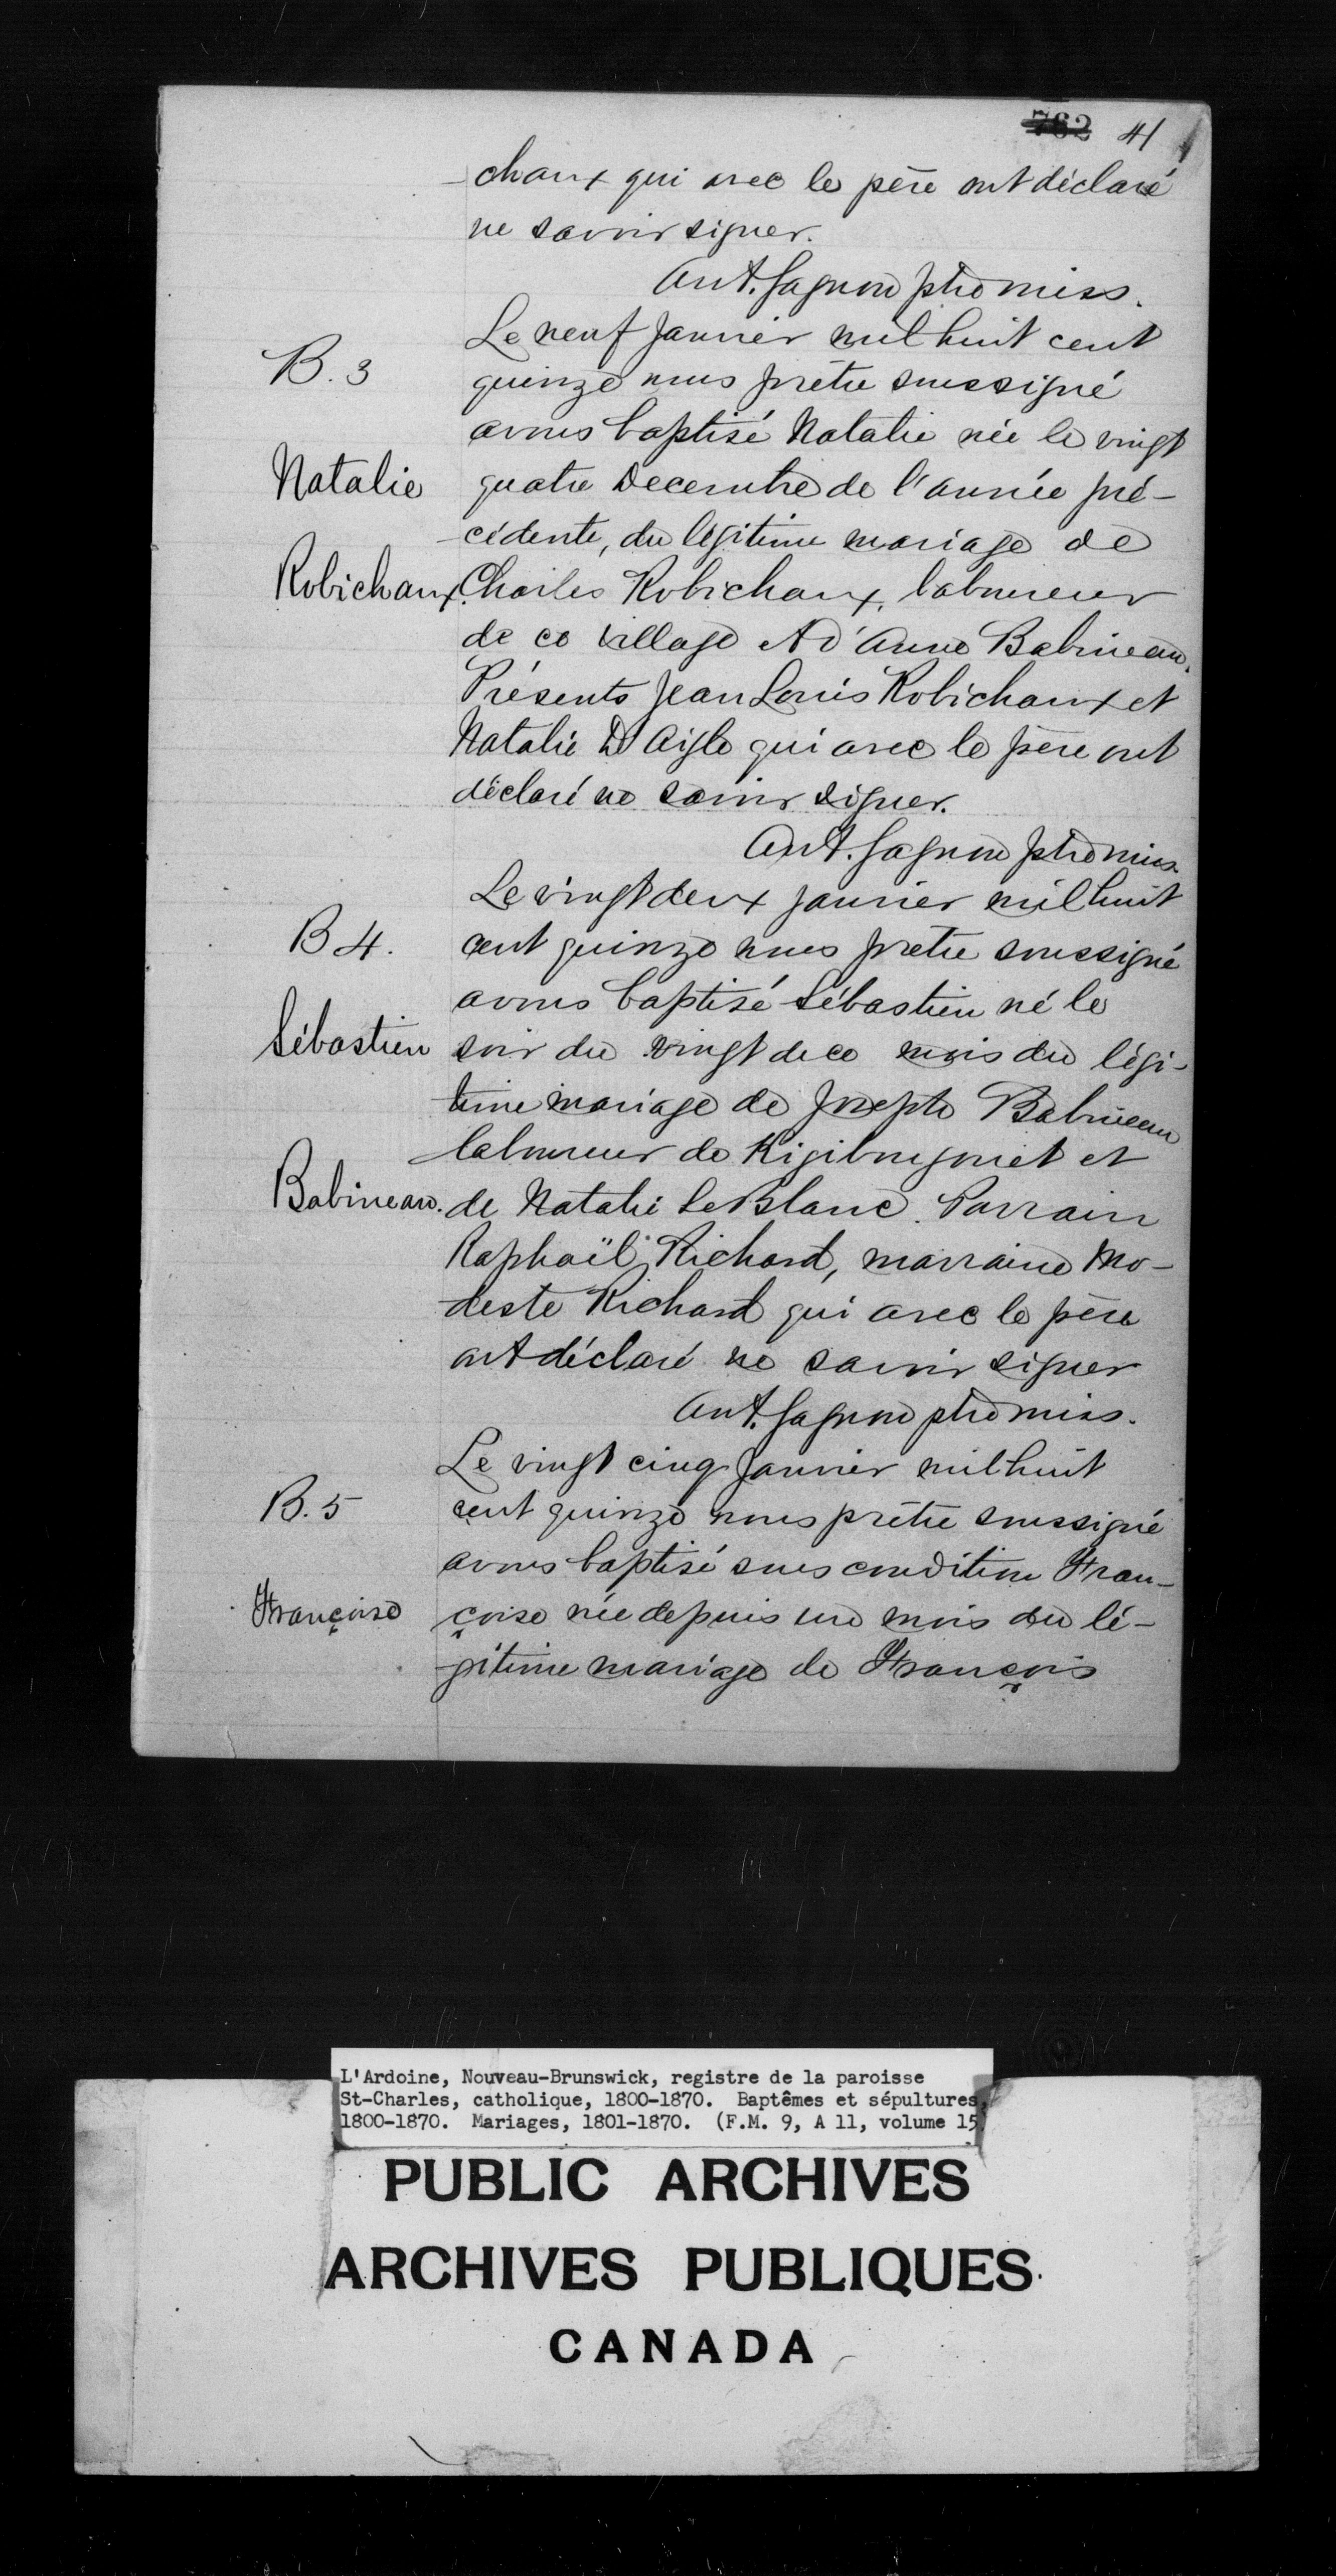 762 41
chaux qui avec le père ont déclaré
ne savoir signer.
Ant. Gagnon ptre miss.
B. 3
Le neuf Janvier mil huit cent
quinze nous prêtre soussigné
avons baptisé Natalie née le vingt
Natalie
quatre Decembre de l'année pré-
cédente, du légitime mariage de
Robichaux
Charles Robichaux, laboureur
de ce village et d'Anne Babineau.
Présents Jean Louis Robichaux et
Natalie D'Aigle qui avec le père ont
déclaré ne savoir signer.
Ant. Gagnon ptre miss.
Le vingt deux janvier mil huit
B 4.
cent quinze nous prêtre soussigné
avons baptisé Sébastien né le
Sébastien
soir du vingt de ce mois du légi-
time mariage de Joseph Babineau
laboureur de Kigibouguiet et
Babineau.
de Natalie LeBlanc. Parrain
Raphaël Richard, marraine Mo-
deste Richard qui avec le père
ont déclaré ne savoir signer
Ant. Gagnon ptre miss.
Le vingt cinq Janvier mil huit
B. 5
cent quinze nous prêtre soussigné
avons baptisé sous condition Fran-
Françoise
çoise née depuis un mois du lé-
gitime mariage de François
L'Ardoine, Nouveau-Brunswick, registre de la paroisse
St-Charles, catholique, 1800-1870. Baptêmes et sépultures,
1800-1870. Mariages, 1801-1870. (F.M. 9, A 11, volume 15)
PUBLIC ARCHIVES
ARCHIVES PUBLIQUES
CANADA